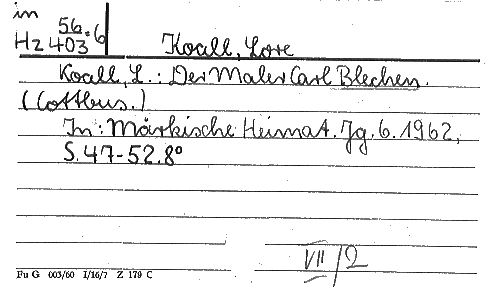 in
Hz 56/403:6
Koall, Lore
Koall, L.: Der Maler Carl Blechen.
(Cottbus.)
In: Märkische Heimat. Jg. 6. 1962,
S. 47-52. 8°
VII/2
Fu G 003/60 I/16/7 Z 179 C